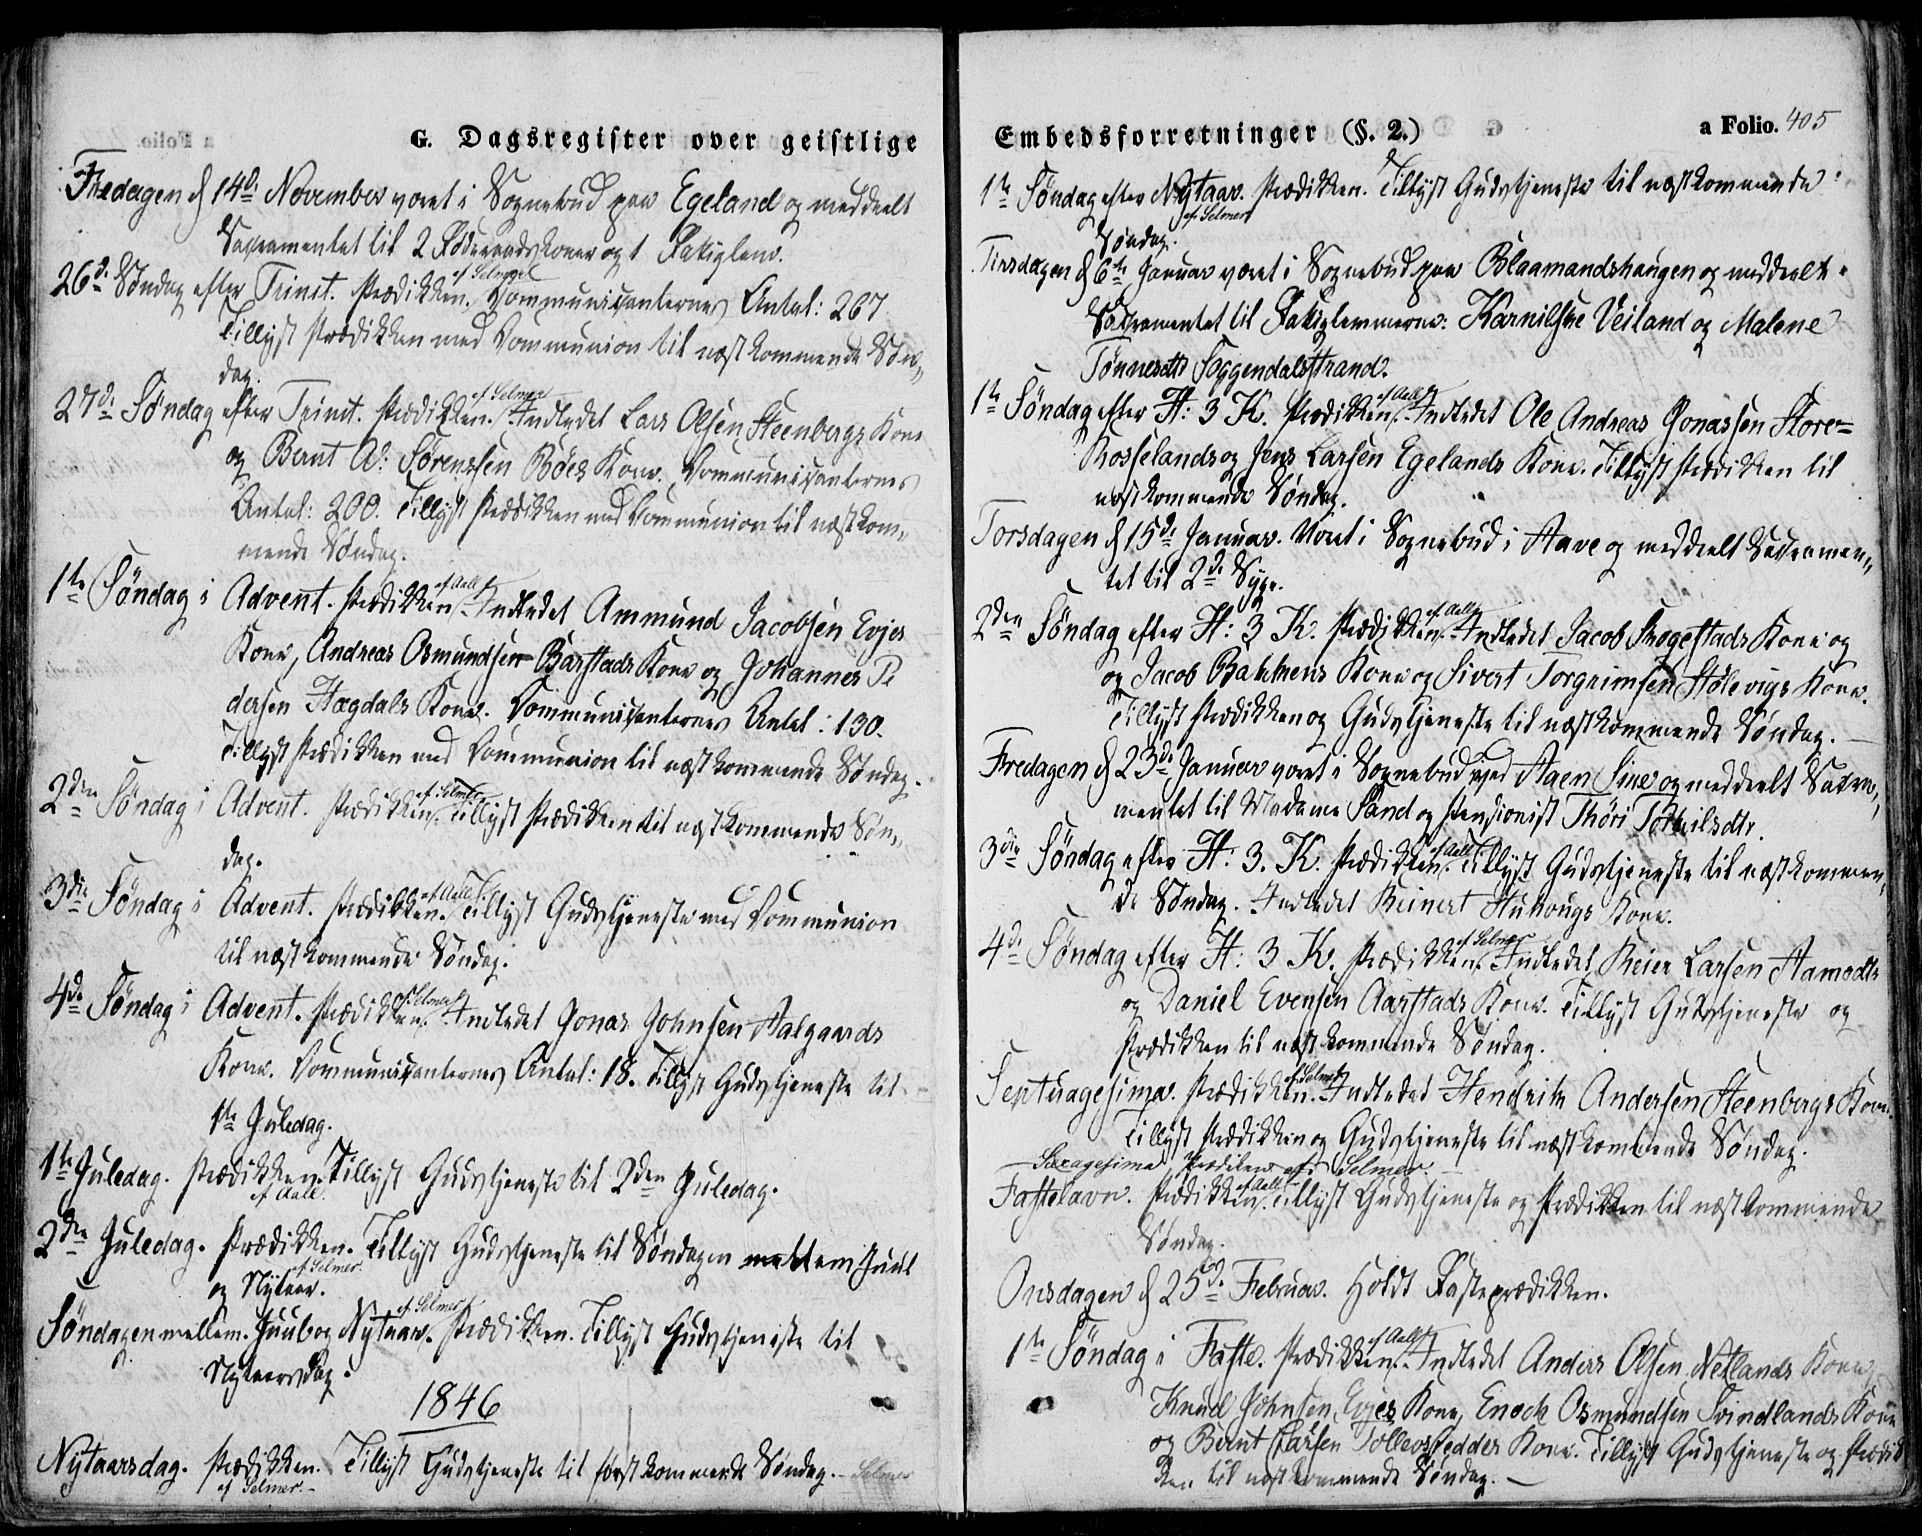 G. Dagsregister over geistlige
Fredagen d 14de November været i Sognebud paa Egeland og meddeelt
Sacramentet til 2 Føderaadskoner og 1 Fatiglem.
26de Søndag efter Trinit. Prædikken af Selmer. Communicanternes Antal: 267
Tillyst Prædikken med Communion til næstkommende Søn-
dag.
27de Søndag efter Trinit. Prædikken af Selmer. Indledet Lars Olsen Steenbergs Kone
og Bernt A: Sørenssen Bøes Kone. Communicanternes
Antal: 200. Tillyst Prædikken med Communion til næstkom-
mende Søndag.
1te Søndag i Advent. Prædikken af Aall. Indledet Ammund Jacobsen Evjes
Kone, Andreas Osmundsen Barstads Kone og Johannes Pe
dersen Hægdals Kone. Communicanternes Antal: 130.
Tillyst Prædikken med Communion til næstkommende Søndag.
2den Søndag i Advent. Prædikken af Selmer. Tillyst Prædikken til næstkommende Søn-
dag.
3die Søndag i Advent. Prædikken af Aall. Tillyst Gudstjeneste med Communion
til næstkommende Søndag.
4de Søndag i Advent. Prædikken af Selmer. Indledet Jonas Johnsen Aalgaards
Kone. Communicanternes Antal: 18. Tillyst Gudstjeneste til
1te Juledag.
1te Juledag. Prædikken af Aall. Tillyst Gudstjeneste til 2den Juledag.
2den Juledag. Prædikken af Selmer. Tillyst Gudstjeneste til Søndagen mellem Juul
og Nytaar.
Søndagen mellem Juul og Nytaar. af Selmer Prædikken. Tillyst Gudstjeneste til
Nytaarsdag.
1846
Nytaarsdag. Prædikken af Selmer. Tillyst Gudstjeneste til førstkommende Søndag. Selmer
Embedsforretninger (§. 2.) a Folio. 405
1te Søndag efter Nytaar. af Selmer Prædikken. Tillyst Gudstjeneste til næstkommende
Søndag.
Tirsdagen d 6te Januar været i Sognebud paa Blaamandshaugen og meddeelt
Sacramentet til Fatiglemmerne: Karnilshe Veiland og Malene
Tønnesdtr Soggendalsstrand.
1te Søndag efter H: 3 K. Prædikken af Aall. Indledet Ole Andreas Jonassen Store-
Rosselands og Jens Larsen Egelands Kone. Tillyst Prædikken til
næstkommende Søndag.
Torsdagen d 15de Januar. Været i Sognebud i Aave og meddeelt Sacramen-
tet til 2de Syge.
2den Søndag efter H: 3 K. Prædikken af Aall. Indledet Jacob Skogestads Kone og
og Jacob Bakkens Kone og Sivert Torgrimsen Stølevigs Kone.
Tillyst Prædikken og Gudstjeneste til næstkommende Søndag.
Fredagen d 23de Januar været i Sognebud ved Aaen Sire og meddeelt Sacra-
mentet til Madame Sand og Pensionist Thöri Torkilsdtr.
3die Søndag efter H. 3. K. Prædikken af Aall. Tillyst Gudstjeneste til næstkommen-
de Søndag. Indledet Reinert Hukougs Kone.
4de Søndag efter H: 3 K. Prædikken af Selmer. Indledet Reier Larsen Aamodts
og Daniel Evensen Aarstads Kone. Tillyst Gudstjeneste og
Prædikken til næstkommende Søndag.
Septuagesima. Prædikken af Selmer. Indledet Hendrik Andersen Steenbergs Kone.
Tillyst Prædikken og Gudstjeneste til næstkommende Søndag.
Sexagesima Prædiken af Selmer.
Fastelavn. Prædikken af Aall. Tillyst Gudstjeneste og Prædikken til næstkommende
Søndag.
Onsdagen d 25de Februar. Holdt Fasteprædikken.
1te Søndag i Faste. Prædikken af Aall. Indledet Anders Olsen Netlands Kone,
Knud Johnsen Evjes Kone, Enoch Osmundsen Svindlands Kone
og Bernt Larsen Tollevstedder Kone. Tillyst Gudstjeneste og Prædik
ken til næstkommende Søndag.